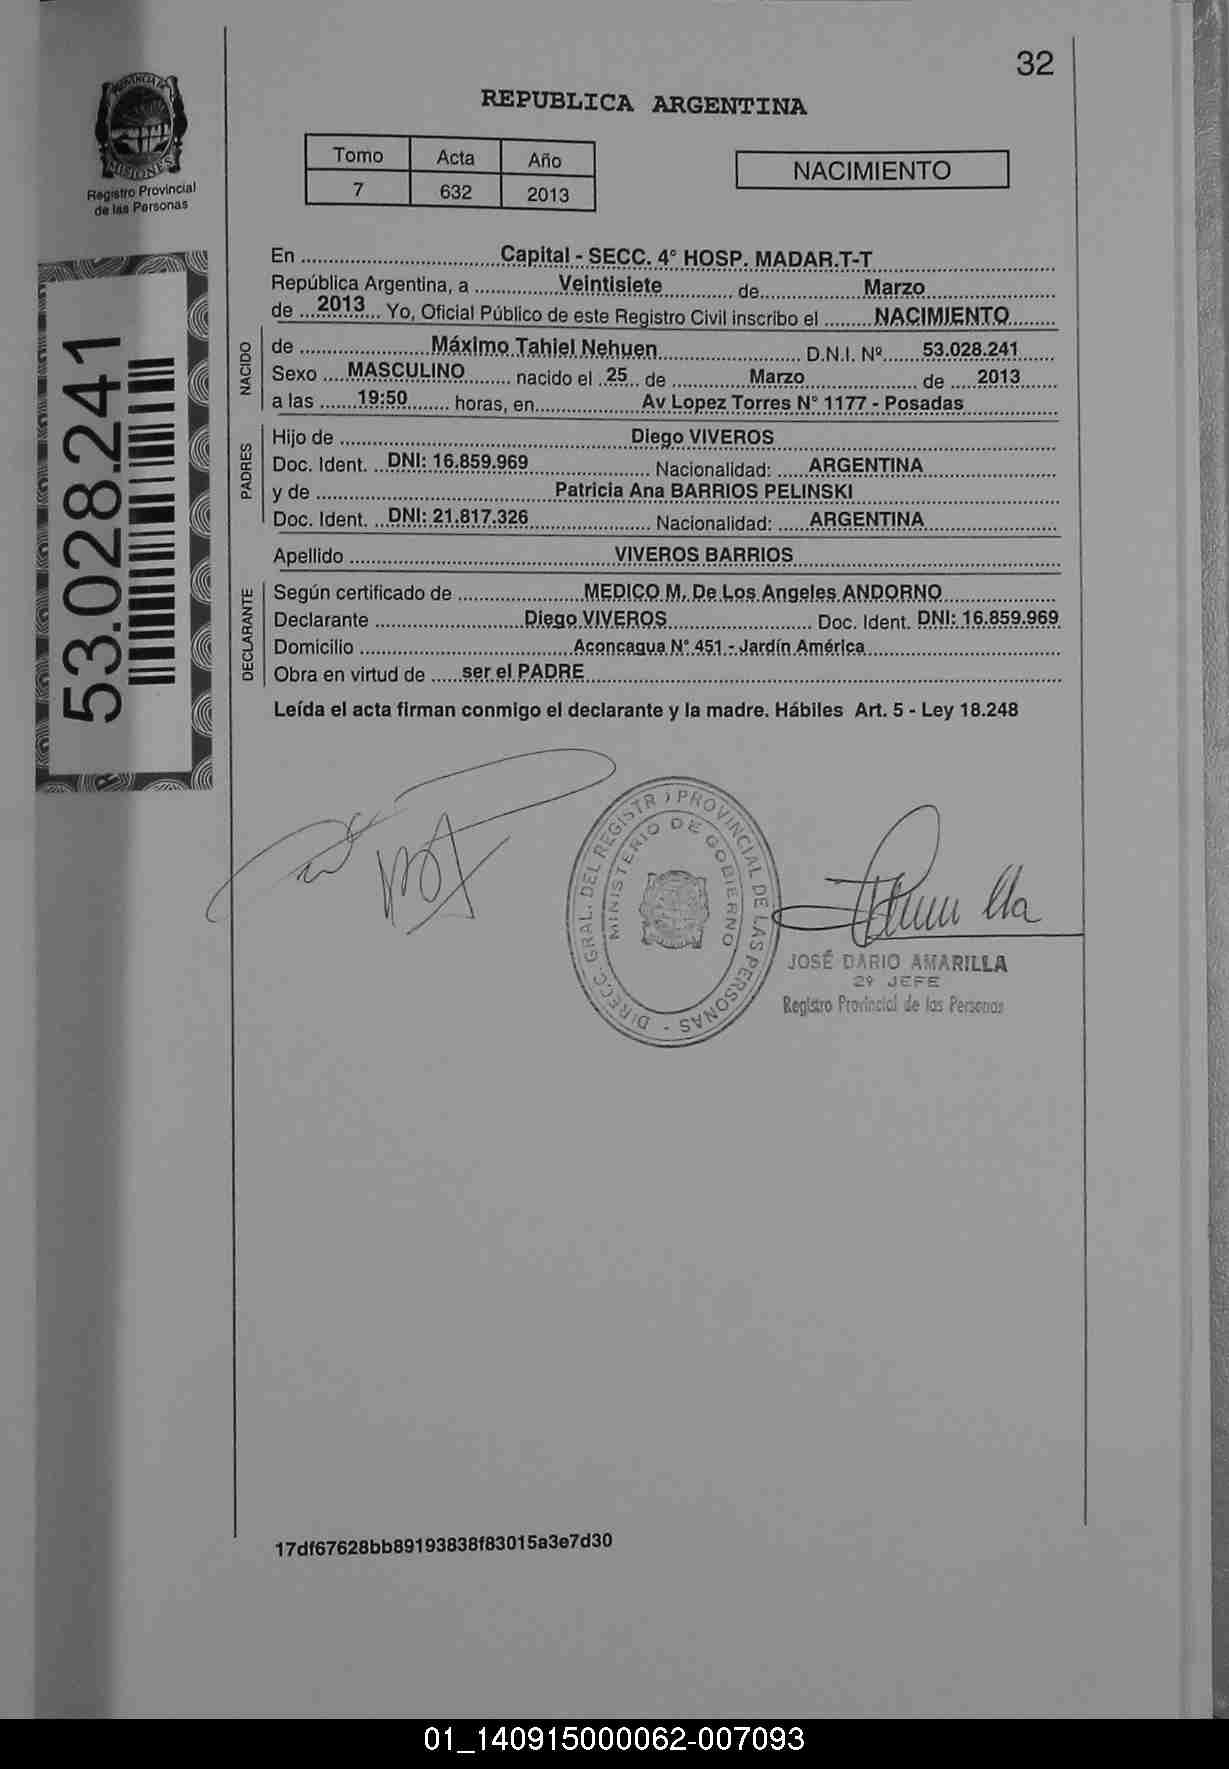 32
PROVINCIA DE
MISIONES
Registro Provincial
de las Personas
REPUBLICA ARGENTINA
Tomo Acta Año
7 632 2013
NACIMIENTO
53.028.241
En ........ Capital - SECC. 4° HOSP. MADAR.T-T ........
República Argentina, a ........ Veintisiete ........ de ........ Marzo ........
de ... 2013 ... Yo, Oficial Público de este Registro Civil inscribo el ........ NACIMIENTO ........
NACIDO
de ........ Máximo Tahiel Nehuen ........ D.N.I. Nº ..... 53.028.241 ......
Sexo ..... MASCULINO ........ nacido el .. 25 .. de ........ Marzo ........ de .... 2013 ......
a las ...... 19:50 ........ horas, en ........ Av Lopez Torres N° 1177 - Posadas ........
PADRES
Hijo de ........ Diego VIVEROS ........
Doc. Ident. .. DNI: 16.859.969 ........ Nacionalidad: ..... ARGENTINA ........
y de ........ Patricia Ana BARRIOS PELINSKI ........
Doc. Ident. .. DNI: 21.817.326 ........ Nacionalidad: ..... ARGENTINA ........
Apellido ........ VIVEROS BARRIOS ........
DECLARANTE
Según certificado de ........ MEDICO M. De Los Angeles ANDORNO ........
Declarante ........ Diego VIVEROS ........ Doc. Ident. DNI: 16.859.969
Domicilio ........ Aconcagua N° 451 - Jardín América ........
Obra en virtud de ..... ser el PADRE ........
Leída el acta firman conmigo el declarante y la madre. Hábiles Art. 5 - Ley 18.248
DIRECC. GRAL. DEL REGISTRO PROVINCIAL DE LAS PERSONAS -
MINISTERIO DE GOBIERNO
JOSÉ DARIO AMARILLA
2º JEFE
Registro Provincial de las Personas
17df67628bb89193838f83015a3e7d30
01_140915000062-007093